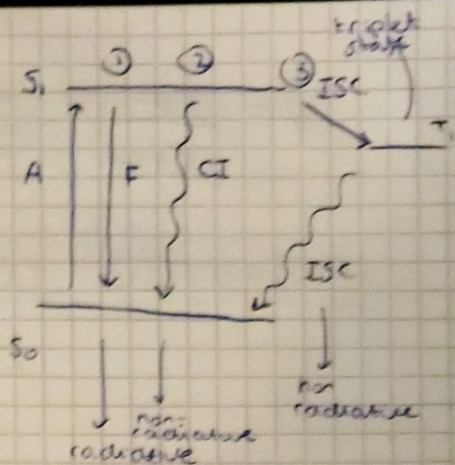 triplet
state
① ② ③ ISC
S₁
T₁
A F CI
ISC
S₀
non-
radiative
radiative
non
radiative